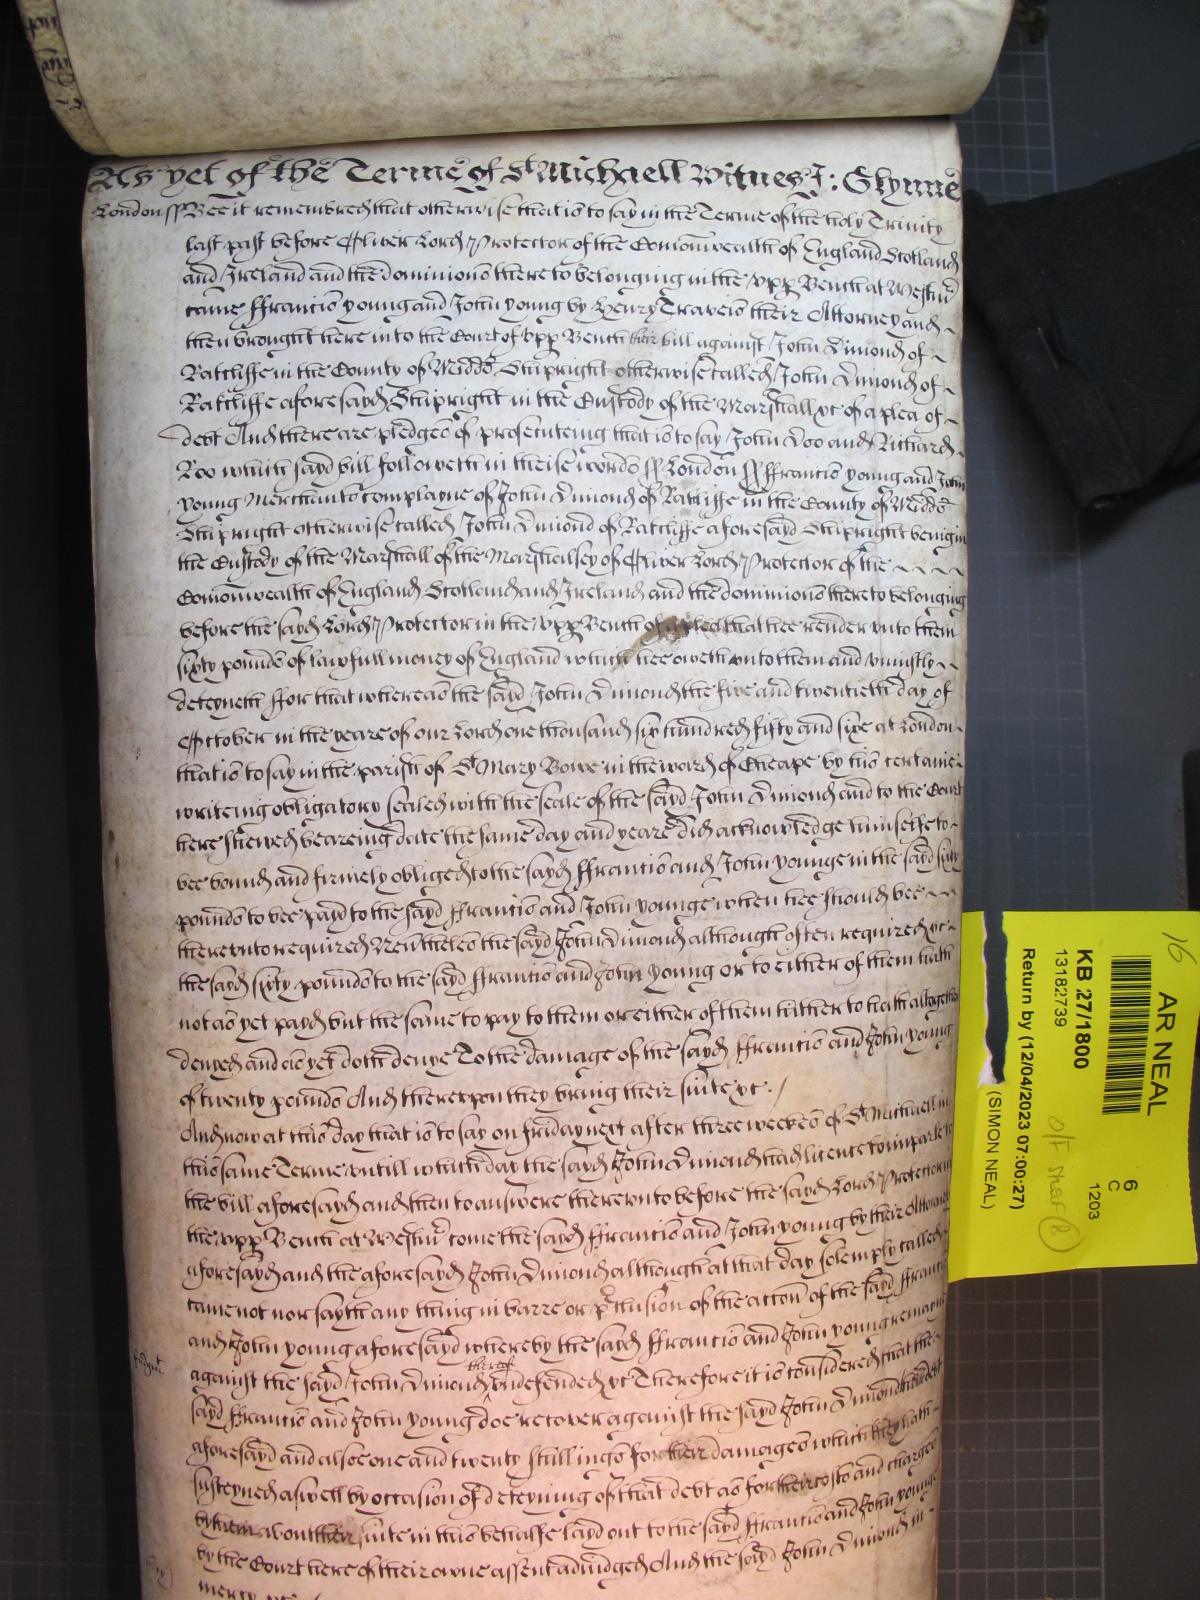 As yet of the Terme of St Michaell Witnes J: Glynne
London ss Bee it remembred that otherwise that is to say in the Terme of the holy Trinity
last past before Oliver Lord Protector of the Comonwealth of England Scotland
and Ireland and the dominions there to belonging in the upp Bench at Westmr
came ffrancis young and John young by Henry Traveis their Attorney and
then brought here into the Court of upp Bench their bill against John Dimond of
Ratcliffe in the County of Midds Shipright otherwise called John Dimond of
Ratcliffe aforesayd Shipright in the Custody of the Marshall &c of a plea of
debt And there are pledges of prosecuteing that is to say John Doo and Richard
Roo which sayd bill followeth in theise words ss London ss ffrancis young and John
young Merchants complayne of John Dimond of Ratcliffe in the County of Midds
Shipright otherwise called John Dimond of Ratcliffe aforesayd Shipright being in
the Custody of the Marshall of the Marshalsey of Oliver Lord Protector of the
Comonwealth of England Scotland and Ireland and the dominions thereto belonging
before the sayd Lord Protector in the upp Bench of a plea that hee render unto them
sixty pounds of lawfull money of England which hee oweth unto them and uniustly
deteyneth ffor that whereas the sayd John Dimond the five and twentieth day of
October in the yeare of our Lord one thousand six hundred fifty and sixe at London
that is to say in the parish of St Mary Bowe in the ward of Cheape by his certaine
writeing obligatory sealed with the seale of the sayd John Dimond and to the Court
here shewed beareing date the same day and yeare did acknowledge himselfe to
bee bound and firmely obliged to the sayd ffrancis and John younge in the sayd sixty
pounds to bee payd to the sayd ffrancis and John younge when hee should bee
thereunto required Neutheles the sayd John Dimond although often required &c
the sayd sixty pounds to the sayd ffrancis and John young or to either of them hath
not as yet payd but the same to pay to them or either of them hither to hath altogether
denyed and as yet doth denye To the damage of the sayd ffrancis and John young
of twenty pounds And thereupon they bring their suite &c.
And now at this day that is to say on friday next after three weekes of St Michaell in
this same Terme untill which day the sayd John Dimond had licence to imparle to
the bill aforesayd and then to answere thereunto before the sayd Lord Protector in
the upp Bench at Westmr come the sayd ffrancis and John young by their Attorney
aforesayd and the aforesayd John Dimond although at that day solemply called
came not nor sayth any thing in barre or pclusion of the accon of the sayd ffrancis
and John young aforesayd whereby the sayd ffrancis and John young remayne
Judgmt against the sayd John Dimond thereof undefended &c Therefore it is considered that the
sayd ffrancis and John young doe recover against the sayd John Dimond their debt
aforesayd and alsoe one and twenty shillings for their damages which they hath
susteyned aswell by occasion of deteyning of that debt as for their costs and charges
by them about their suite in this behalfe layd out to the sayd ffrancis and John younge
by the Court here of their owne assent adiudged And the sayd John Dimond in
mercy &c
16
AR NEAL
KB 27/1800
13182739
Return by (12/04/2023 07:00:27)
(SIMON NEAL)
6
C
1203